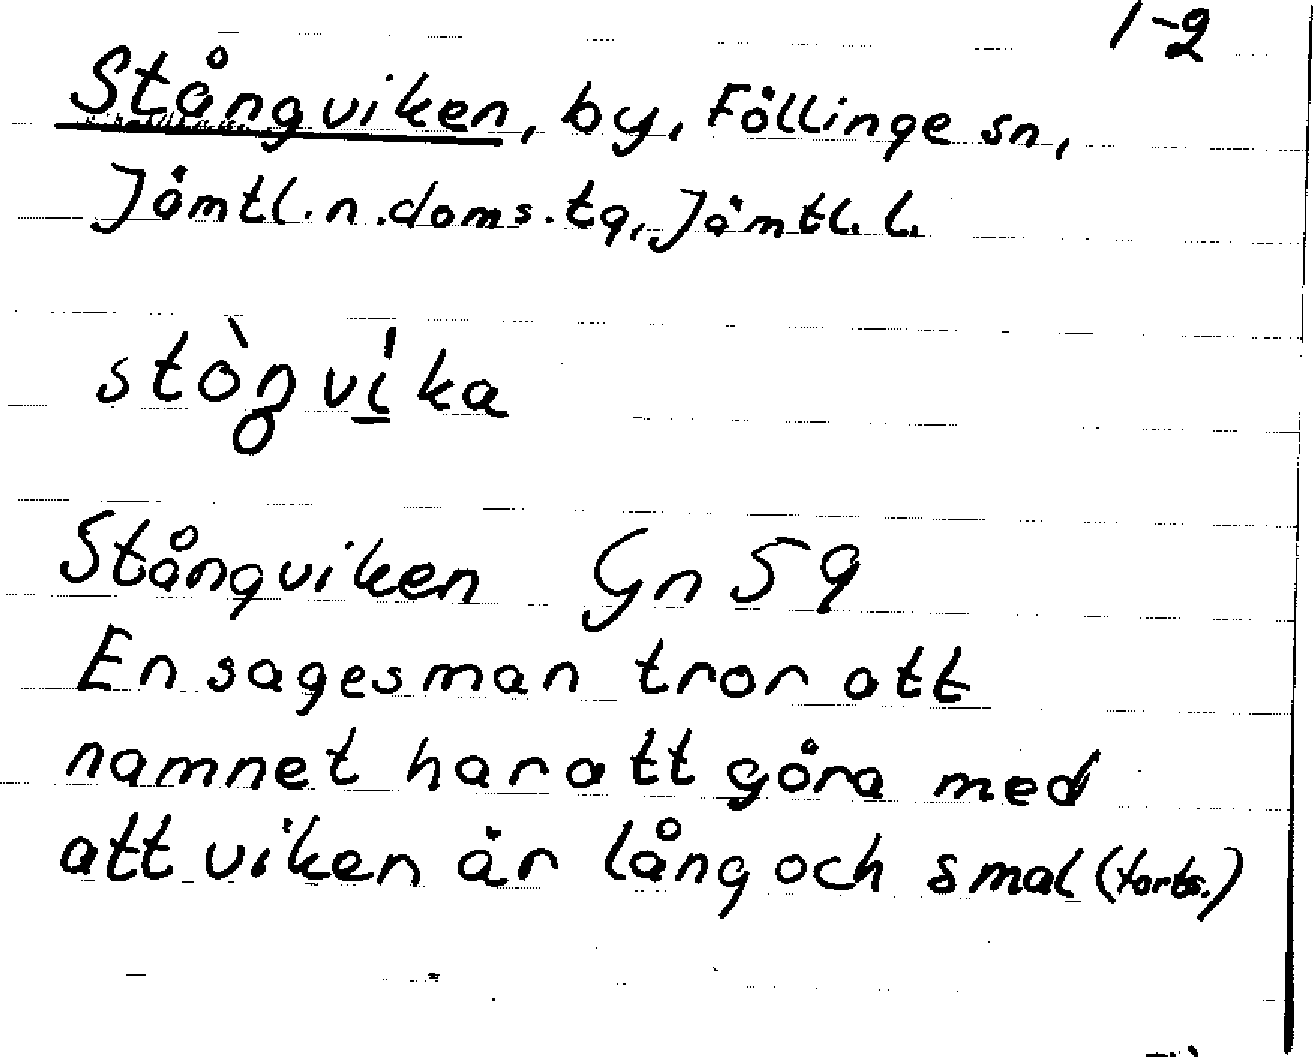 1-2
Stångviken, by, Föllinge sn,
Jämtl. n. doms. tg, Jämtl. l.
stòŋví̲ka
Stångviken Gn 59
En sagesman tror att
namnet har att göra med
att viken är lång och smal (forts.)